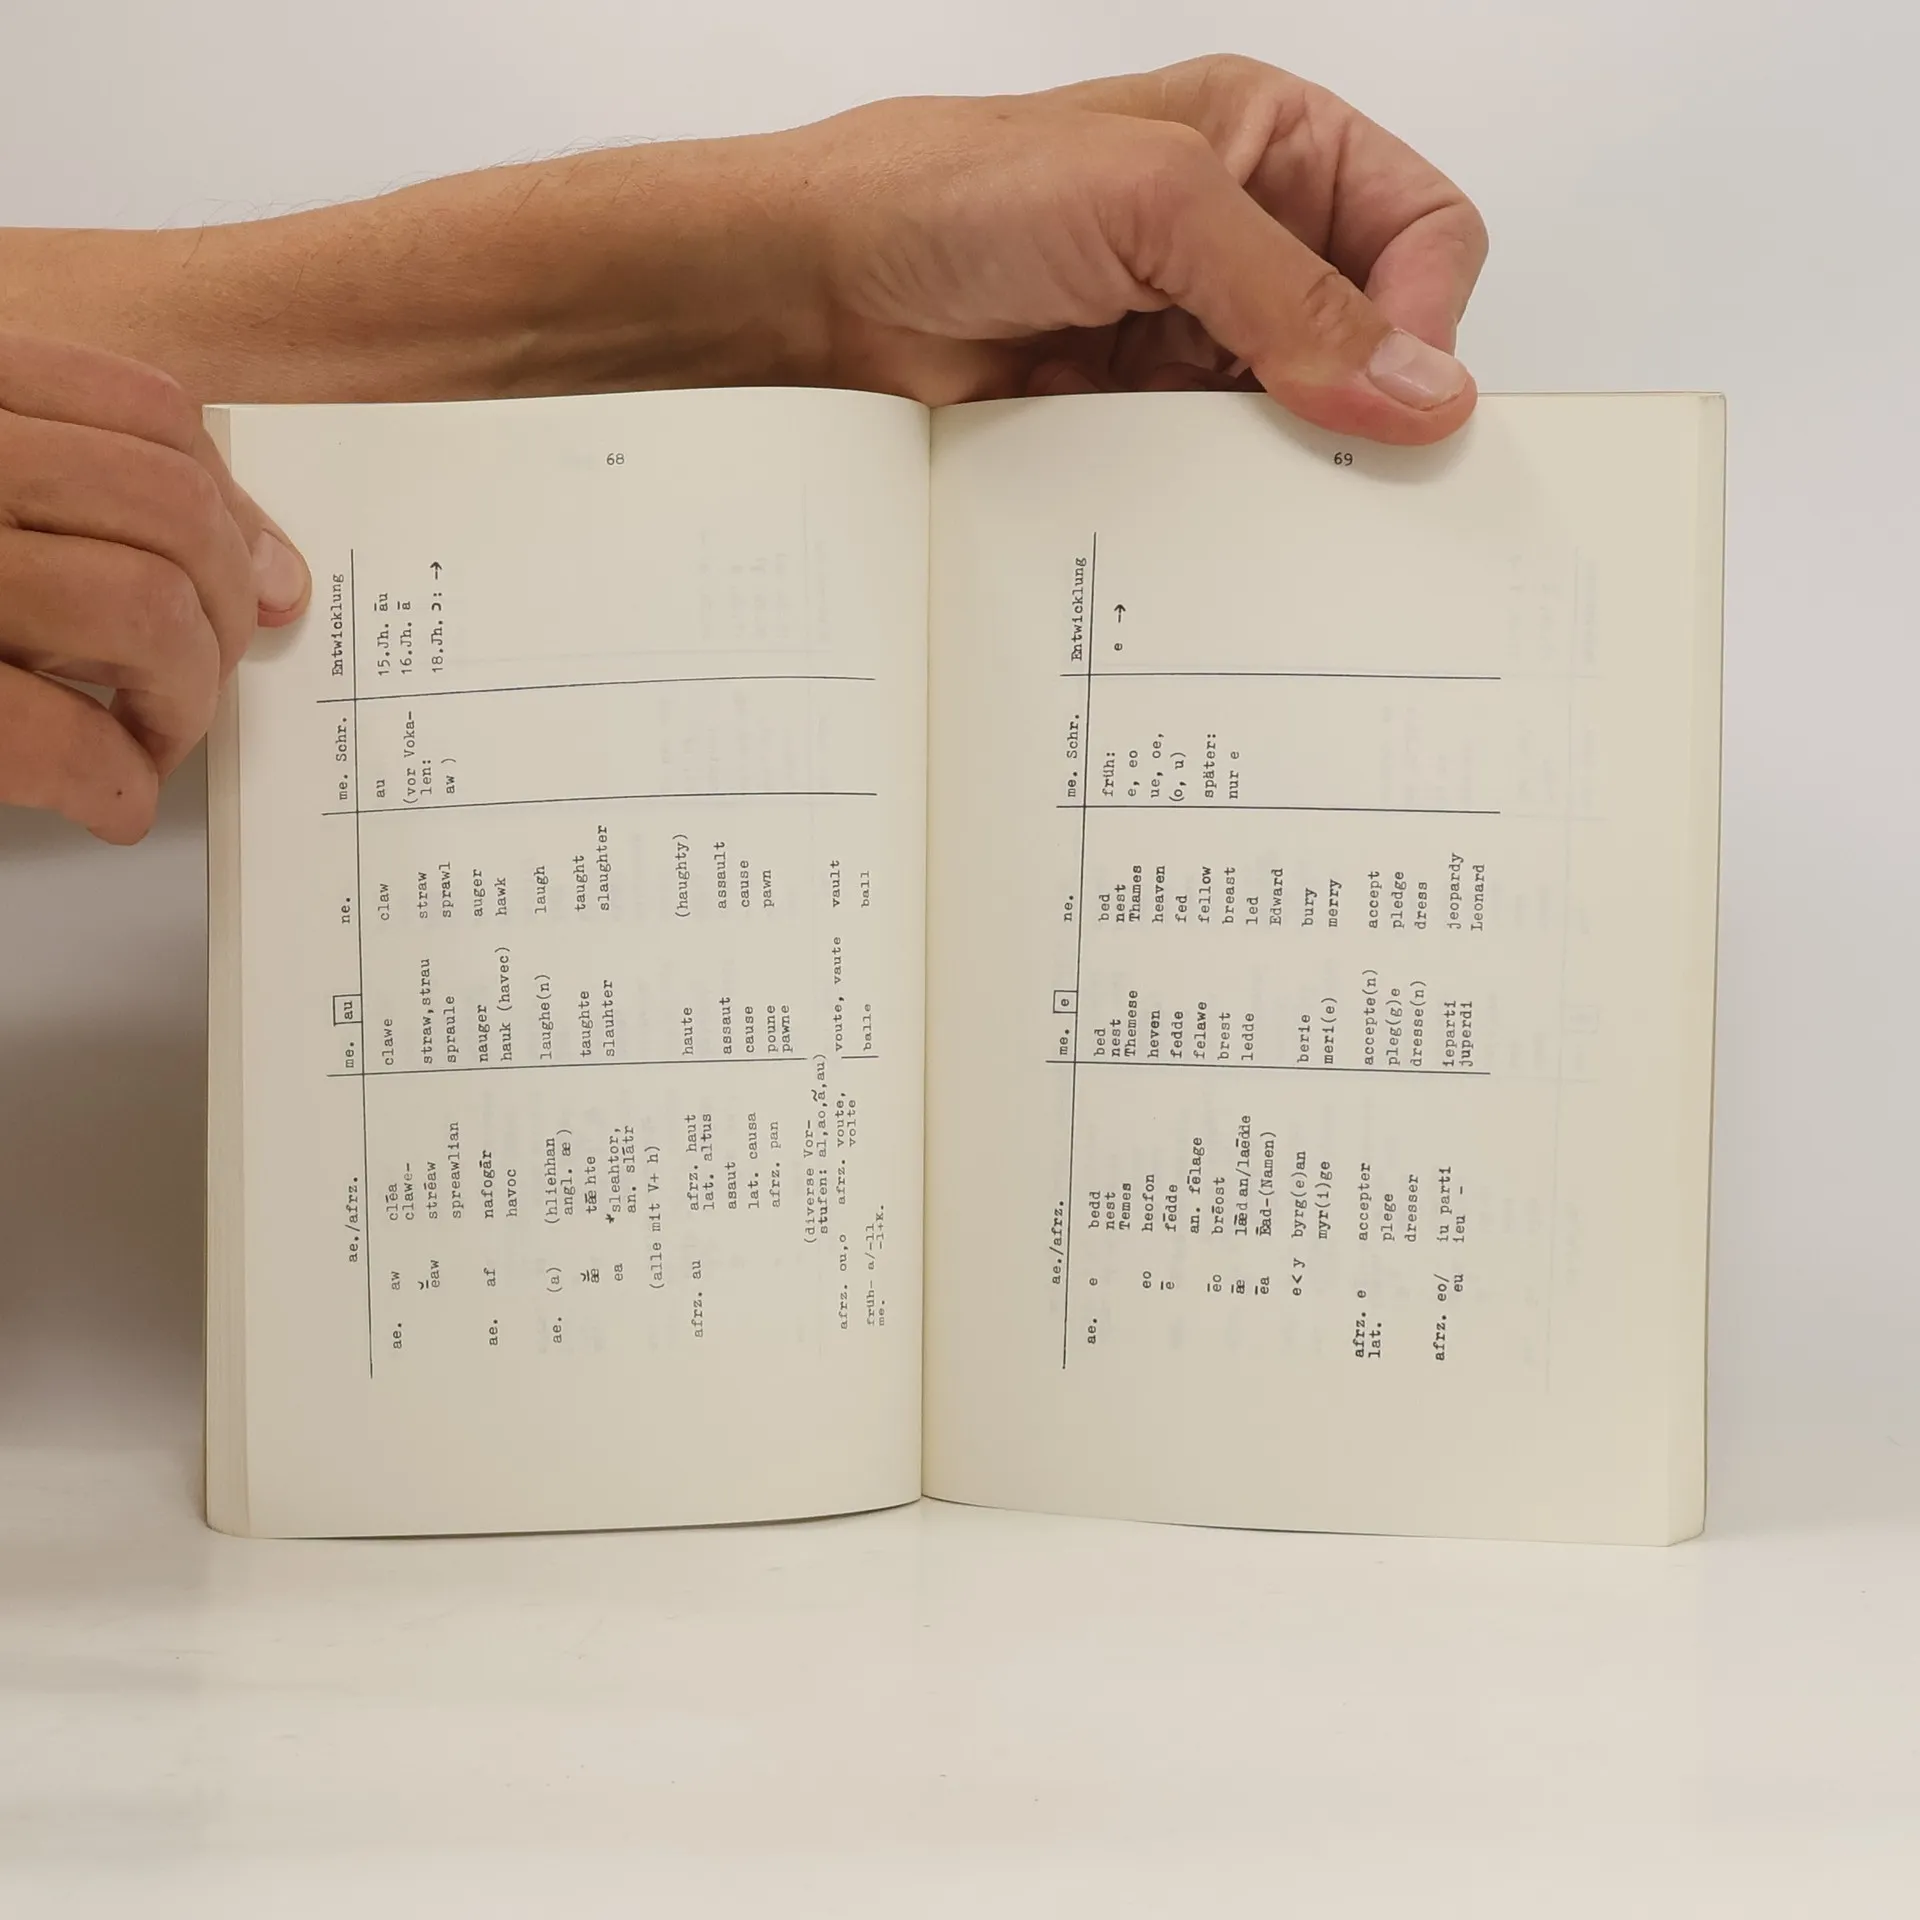 68
ae./afrz. me. au ne. me. Schr. Entwicklung
ae. aw clēa clawe claw au 15.Jh. āu
clawe- 16.Jh. ā
ēaw strēaw straw,strau straw (vor Voka- 18.Jh. ɔ: →
len:
spreawlian spraule sprawl aw )
ae. af nafogār nauger auger
havoc hauk (havec) hawk
ae. (a) (hliehhan laughe(n) laugh
angl. æ )
ǣ̆ tǣhte taughte taught
ea *sleahtor, slauhter slaughter
an. slātr
(alle mit V+ h)
afrz. au afrz. haut haute (haughty)
lat. altus
asaut assaut assault
lat. causa cause cause
afrz. pan poune pawn
pawne
(diverse Vor-
stufen: al,ao,ã,au)
afrz. ou,o afrz. voute, voute, vaute vault
volte
früh- a/-ll balle ball
me. -l+K.
69
ae./afrz. me. e ne. me. Schr. Entwicklung
ae. e bedd bed bed früh: e →
nest nest nest
Temes Themese Thames e, eo
eo heofon heven heaven ue, oe,
ē fēdde fedde fed (o, u)
an. fēlage felawe fellow später:
ēo brēost brest breast nur e
ǣ lǣdan/laēdde ledde led
ēa Ēad-(Namen) Edward
e < y byrg(e)an berie bury
myr(i)ge meri(e) merry
afrz. e accepter accepte(n) accept
lat. plege pleg(g)e pledge
dresser dresse(n) dress
afrz. eo/ iu parti ieparti jeopardy
eu ieu - juperdi Leonard